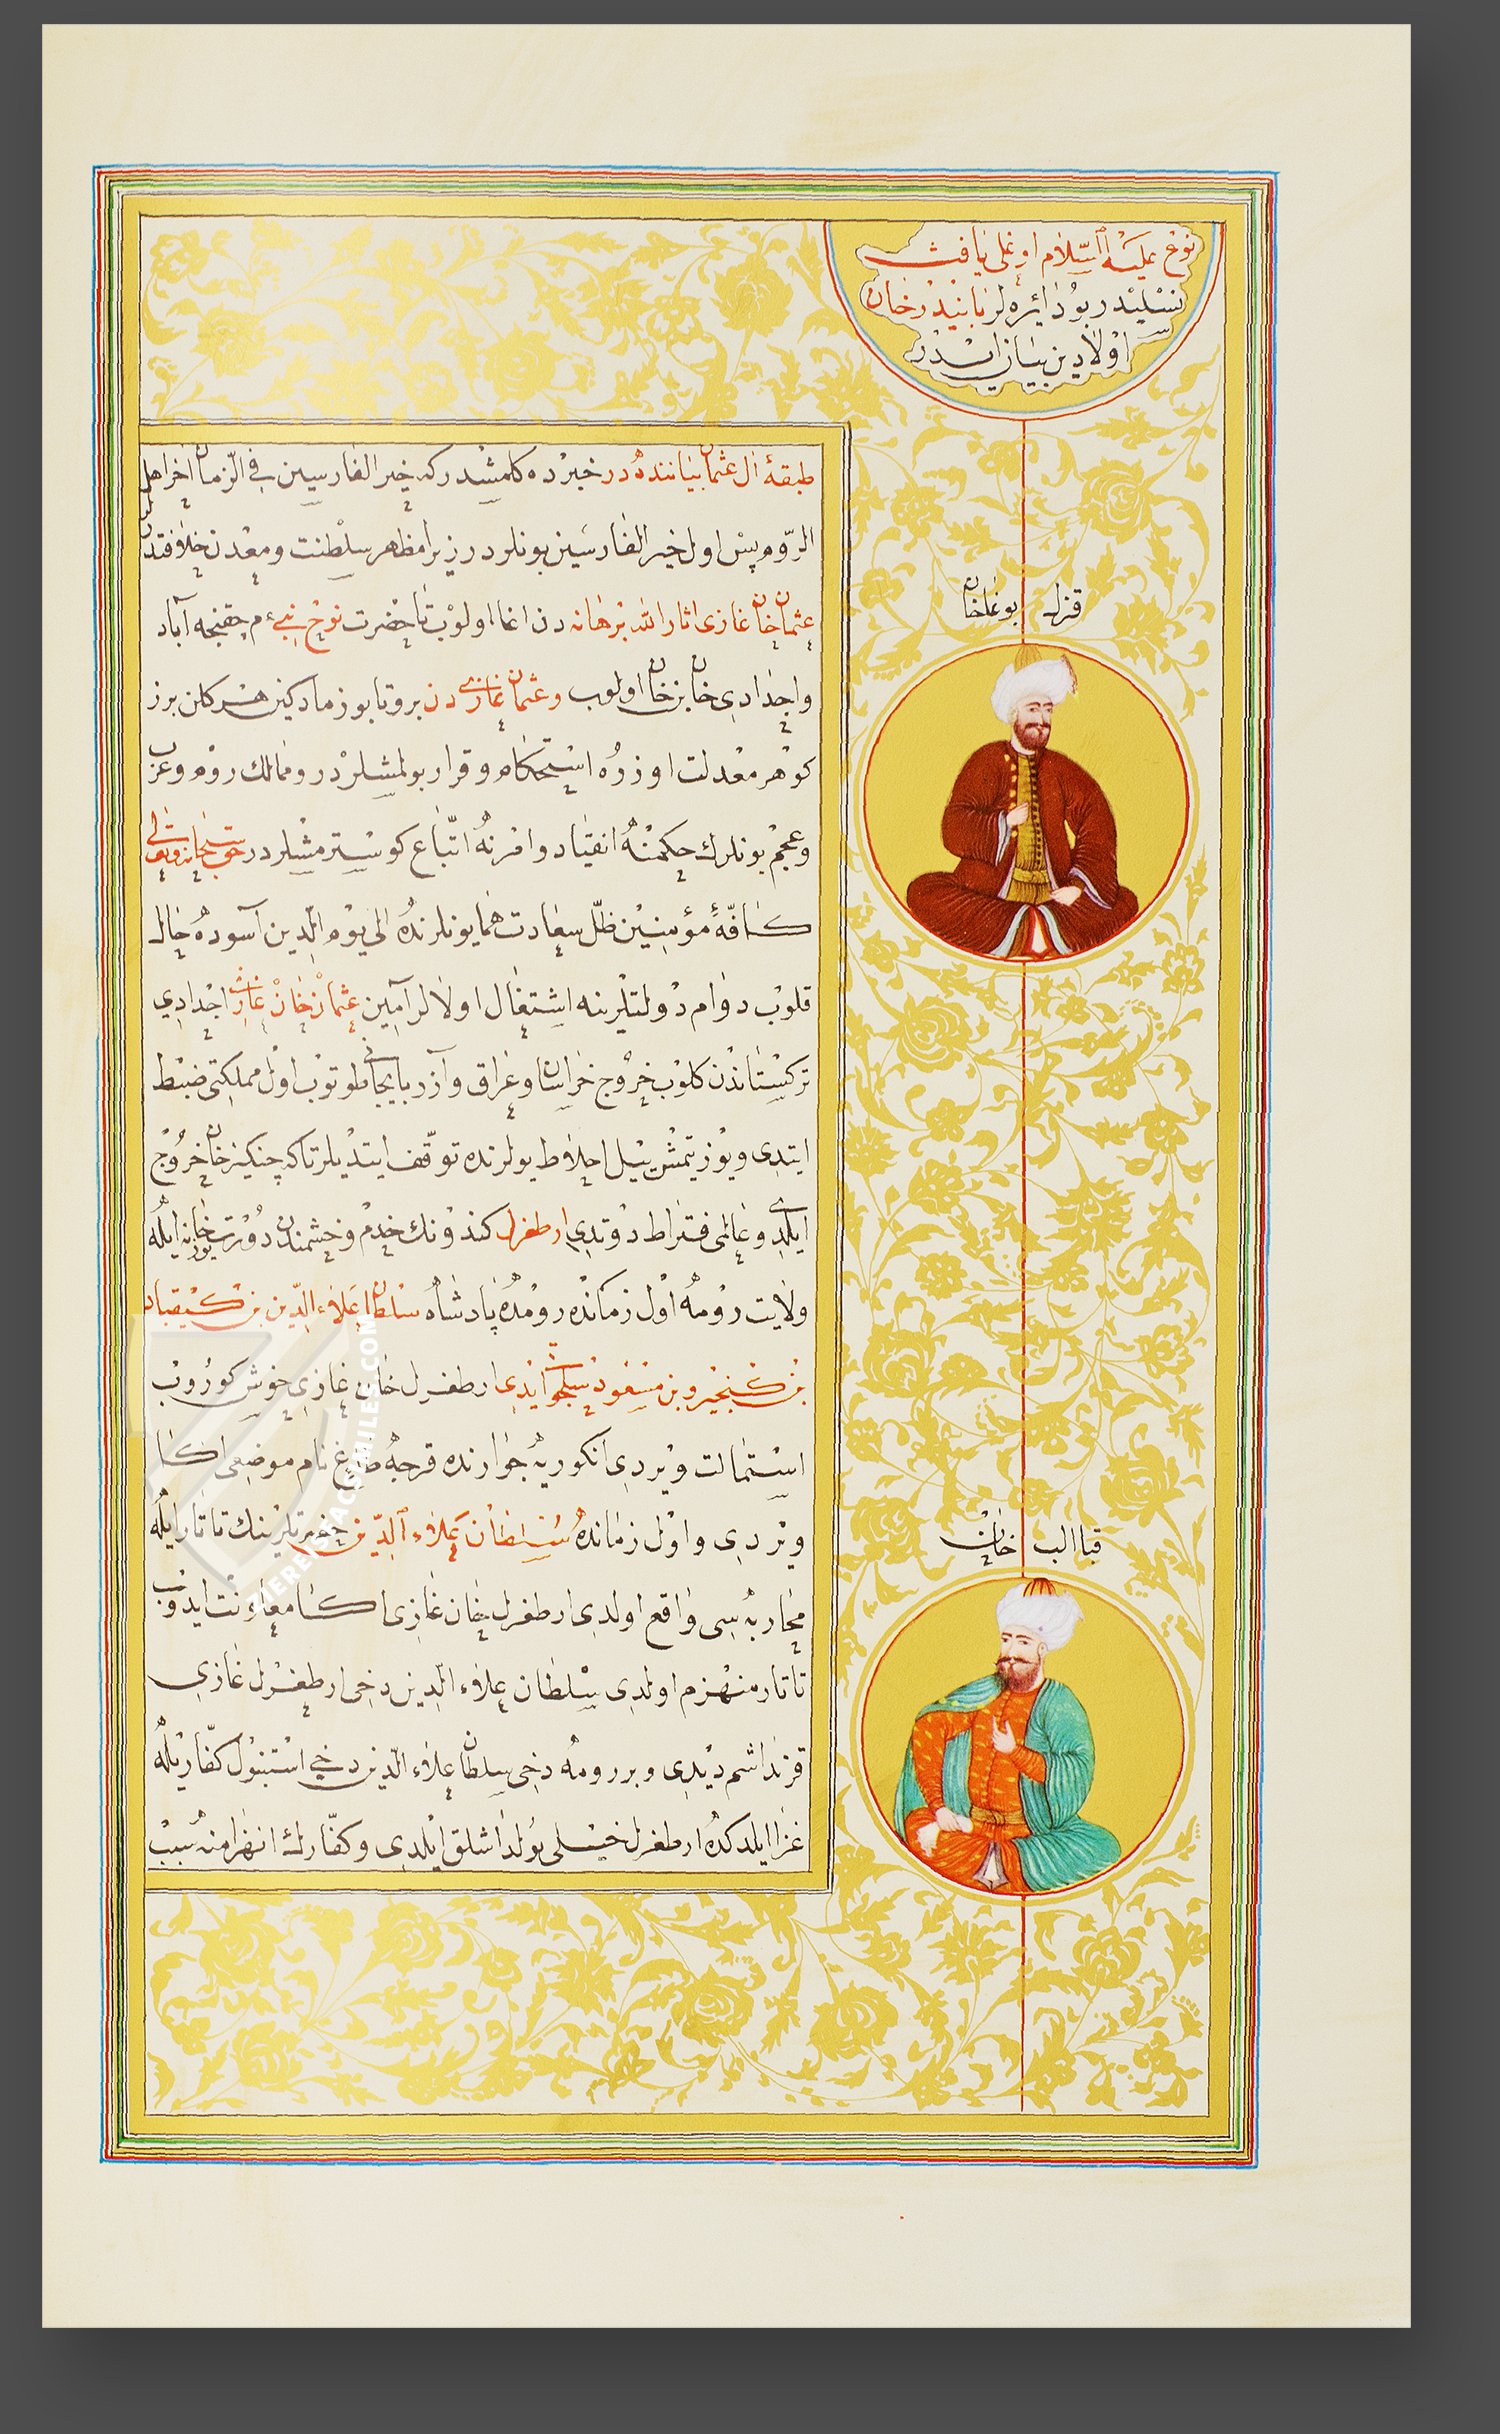 نوح عليه السّلام اوغلى يافث
نسليندر بو دائره لر بايندر خان
اولادين بيان ايدر
قزل بوغا خان
قبا الب خان
طبقهٔ ال عثمان بياننده در خبرده كلمشدر كه خير الفارسين في الزمان اخر اهل
الرّوم پس اول خير الفارسين بونلردر زيرا مظهر سلطنت و معدن خلافتدن
عثمان خان غازى اثار الله برهانه دن اغا اولوب تا حضرت نوح نبى م چقنجه آباد
و اجدادى خان بن خان اولوب و عثمان غازى دن برو تا بو زمادكين هر كلن برر
كوهر معدلت اوزره استحكام و قرار بولمشلردر و ممالك روم و عرب
و عجم بونلرك حكمنه انقياد و امرنه اتّباع كوسترمشلردر حق سبحانه و تعالى
كافّهٔ مؤمنين ظلّ سعادت همايونلرنده الى يوم الّدين آسوده حال
قلوب دوام دولتلرينه اشتغال اولالر آمين عثمان خان غازى اجدادى
تركستاندن كلوب خروج خراسان و عراق و آزربايجانى طوتوب اول مملكتى ضبط
ايتدى و يوز يتمش ييل اخلاط يولرنده توقّف ايتديلر تا كه چنكيز خان خروج
ايلدى و عالمى فتراط دوتدى ارطغرل كندونك خدم و حشمندن دورت يوز خانه ايله
ولايت رومه اول زمانده رومده پادشاه سلطان علاء الدّين بن كيقباد
بن كنجيرو بن مسعود سلجوقى ايدى ارطغرل خان غازى خوش كوروب
استمالت ويردى انكوريه جوارنده قرجه طاغ نام موضعى اكا
ويردى و اول زمانده سلطان علاء الدّين حضرتلرينك تاتار ايله
محاربه سى واقع اولدى ارطغرل خان غازى اكا معاونت ايدوب
تاتار منهزم اولدى سلطان علاء الدين دخى ارطغرل غازى
قرنداشم ديدى و بر رومه دخى سلطان علاء الدين دخى استنبول كفّاريله
غزا ايلدكده ارطغرل خيلى يولداشلق ايلدى و كفّارك انهزامنه سبب